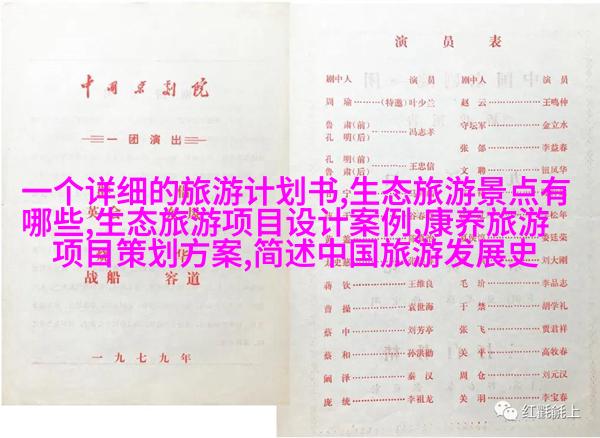 中国京剧院
一团演出
战船 容道
一九七九年
演员表
剧中人 演员 剧中人 演员
周瑜……(特邀)叶少兰 赵云……王鸣仲
鲁肃(前)
孔明(后)……冯志孝 守坛军……金立水
张郃……李益春
孔明(前)
鲁肃(后)……王忠信 文聘……钮凤华
一个详细的旅游计划书,生态旅游景点有
哪些,生态旅游项目设计案例,康养旅游
项目策划方案,简述中国旅游发展史
刘大刚
蒋钦……王维良 毛玠……李品志
曹操……袁世海 于禁……胡学礼
蔡中……刘芳亭 张飞……贾君祥
蔡和……孙洪勋 关平……高牧春
阚泽……秦汉 周仓……刘元汉
庞统……李祖龙 关羽……李宝春
红氍毹上